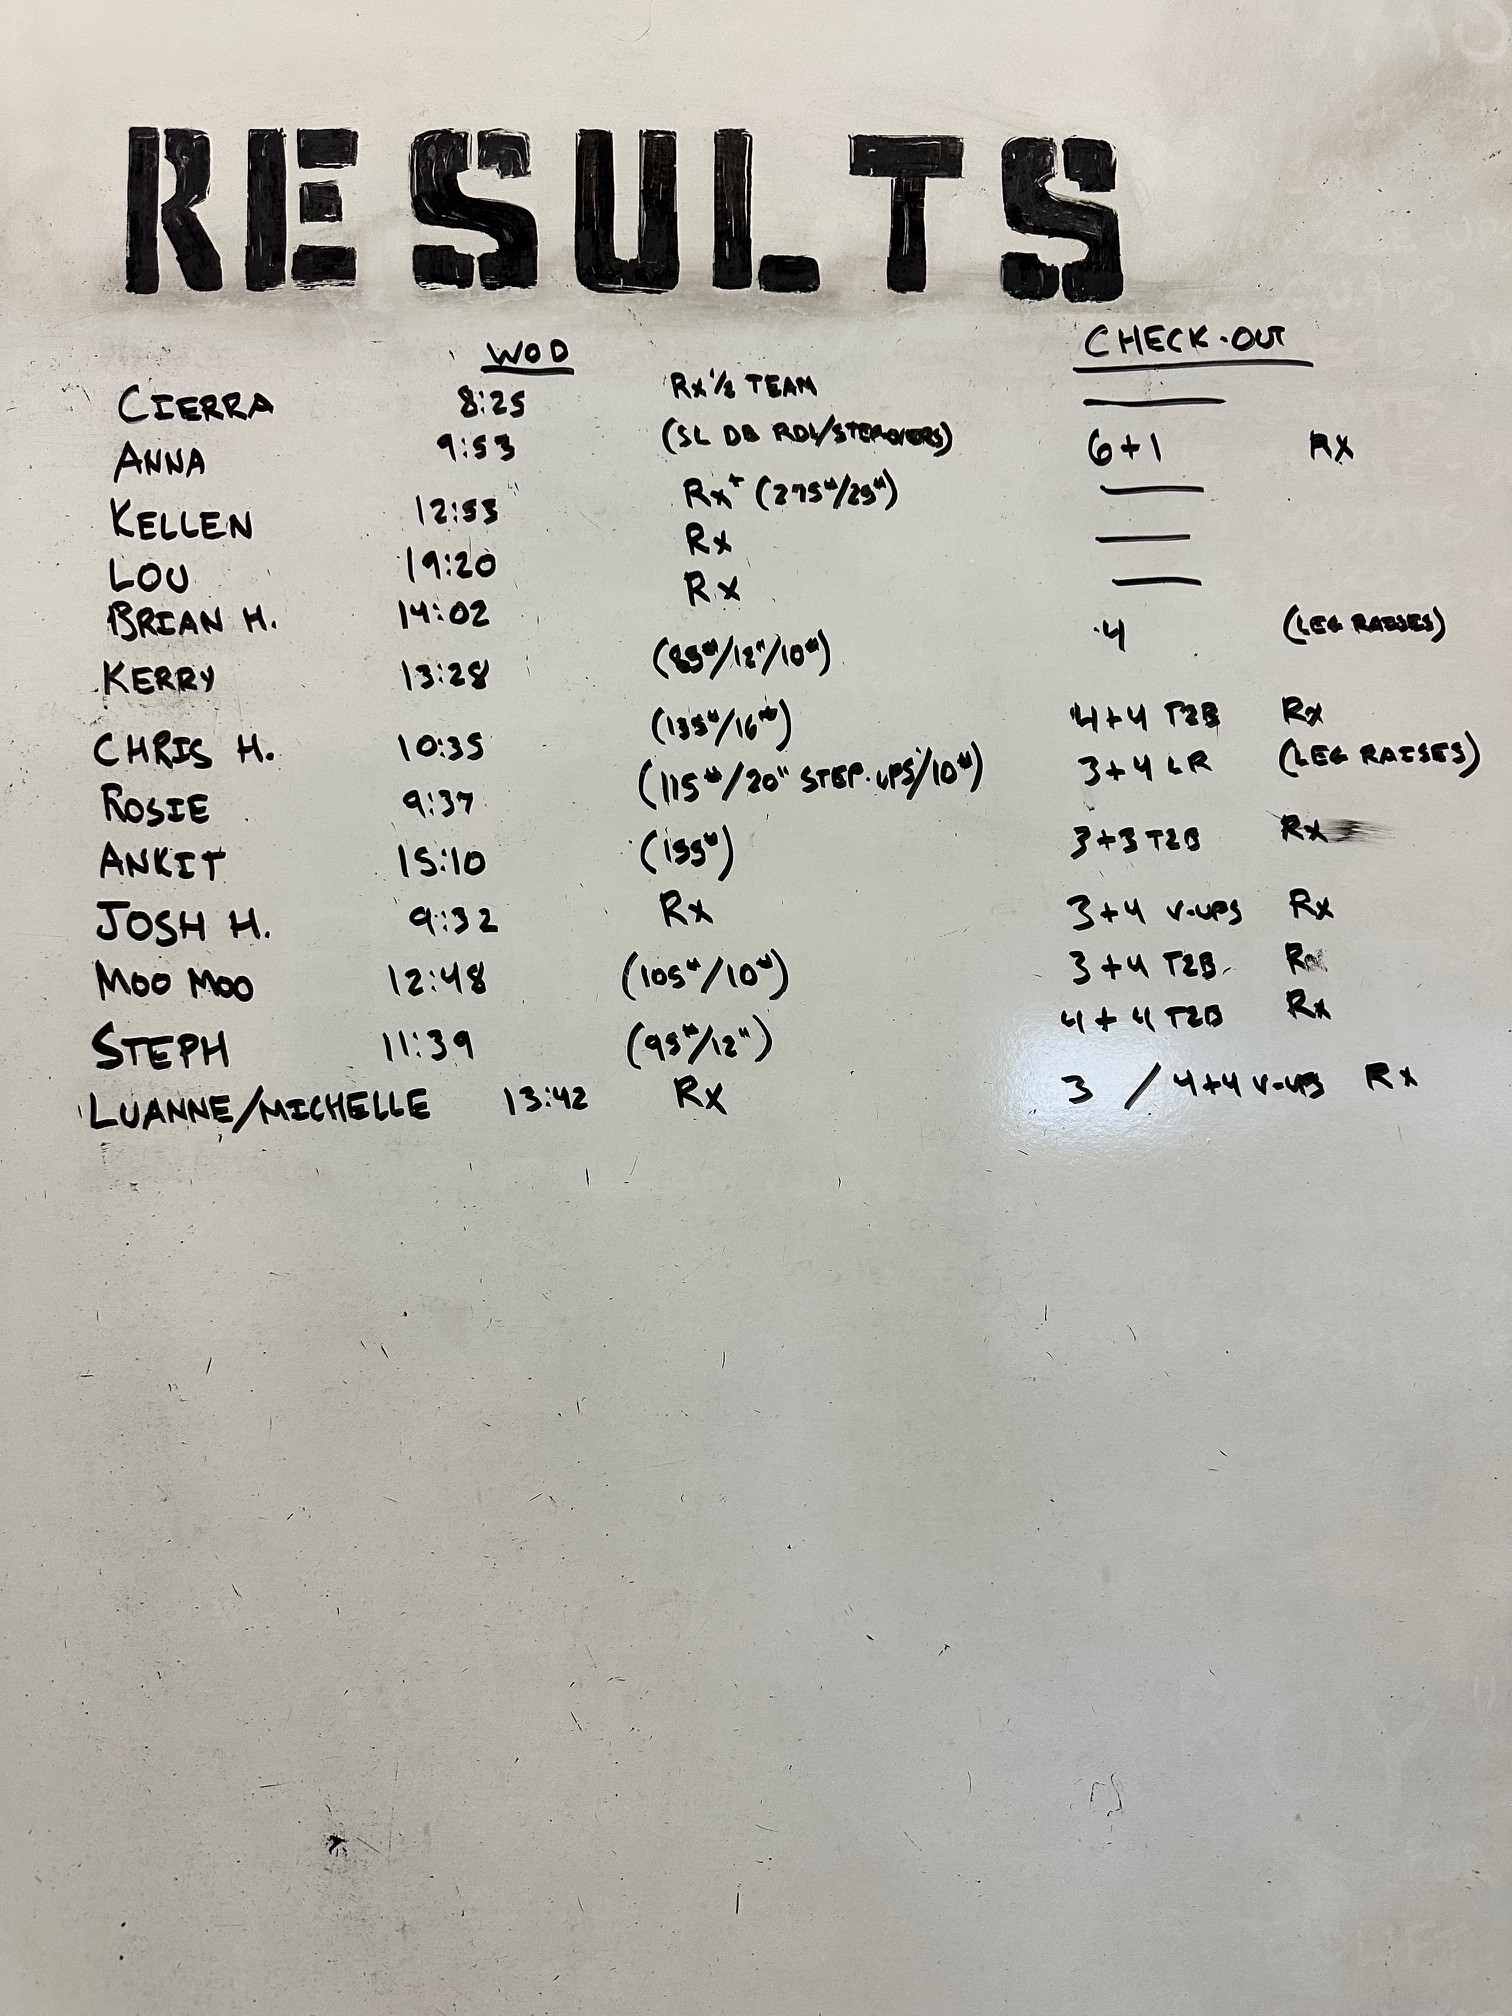 RESULTS
WOD CHECK-OUT
CIERRA 8:25 Rx ½ TEAM —
ANNA 9:53 (SL DB RDL/STEPOVERS) 6+1 RX
KELLEN 12:53 Rx+ (275#/25#) —
LOU 19:20 Rx —
BRIAN H. 14:02 Rx —
KERRY 13:28 (85#/12"/10#) 4 (LEG RAISES)
CHRIS H. 10:35 (135#/16") 4+4 T2B Rx
ROSIE 9:37 (115#/20" STEP-UPS/10#) 3+4 LR (LEG RAISES)
ANKIT 15:10 (155#) 3+3 T2B Rx
JOSH H. 9:32 Rx 3+4 V-UPS Rx
MOO MOO 12:48 (105#/10#) 3+4 T2B Rx
STEPH 11:39 (95#/12") 4+4 T2B Rx
LUANNE/MICHELLE 13:42 Rx 3 / 4+4 V-UPS Rx